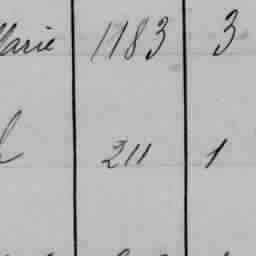 Marie 1183 3
211 1